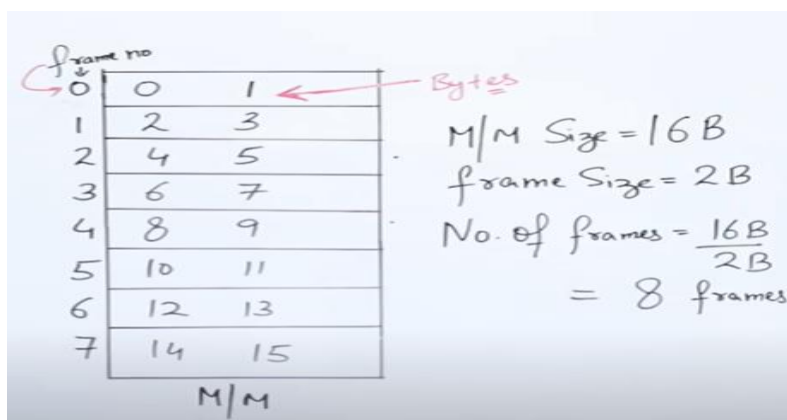 frame no
0 0 1 Bytes
1 2 3
2 4 5
3 6 7
4 8 9
5 10 11
6 12 13
7 14 15
M/M
M/M Size = 16B
frame Size = 2B
No. of frames = 16B
2B
= 8 frames